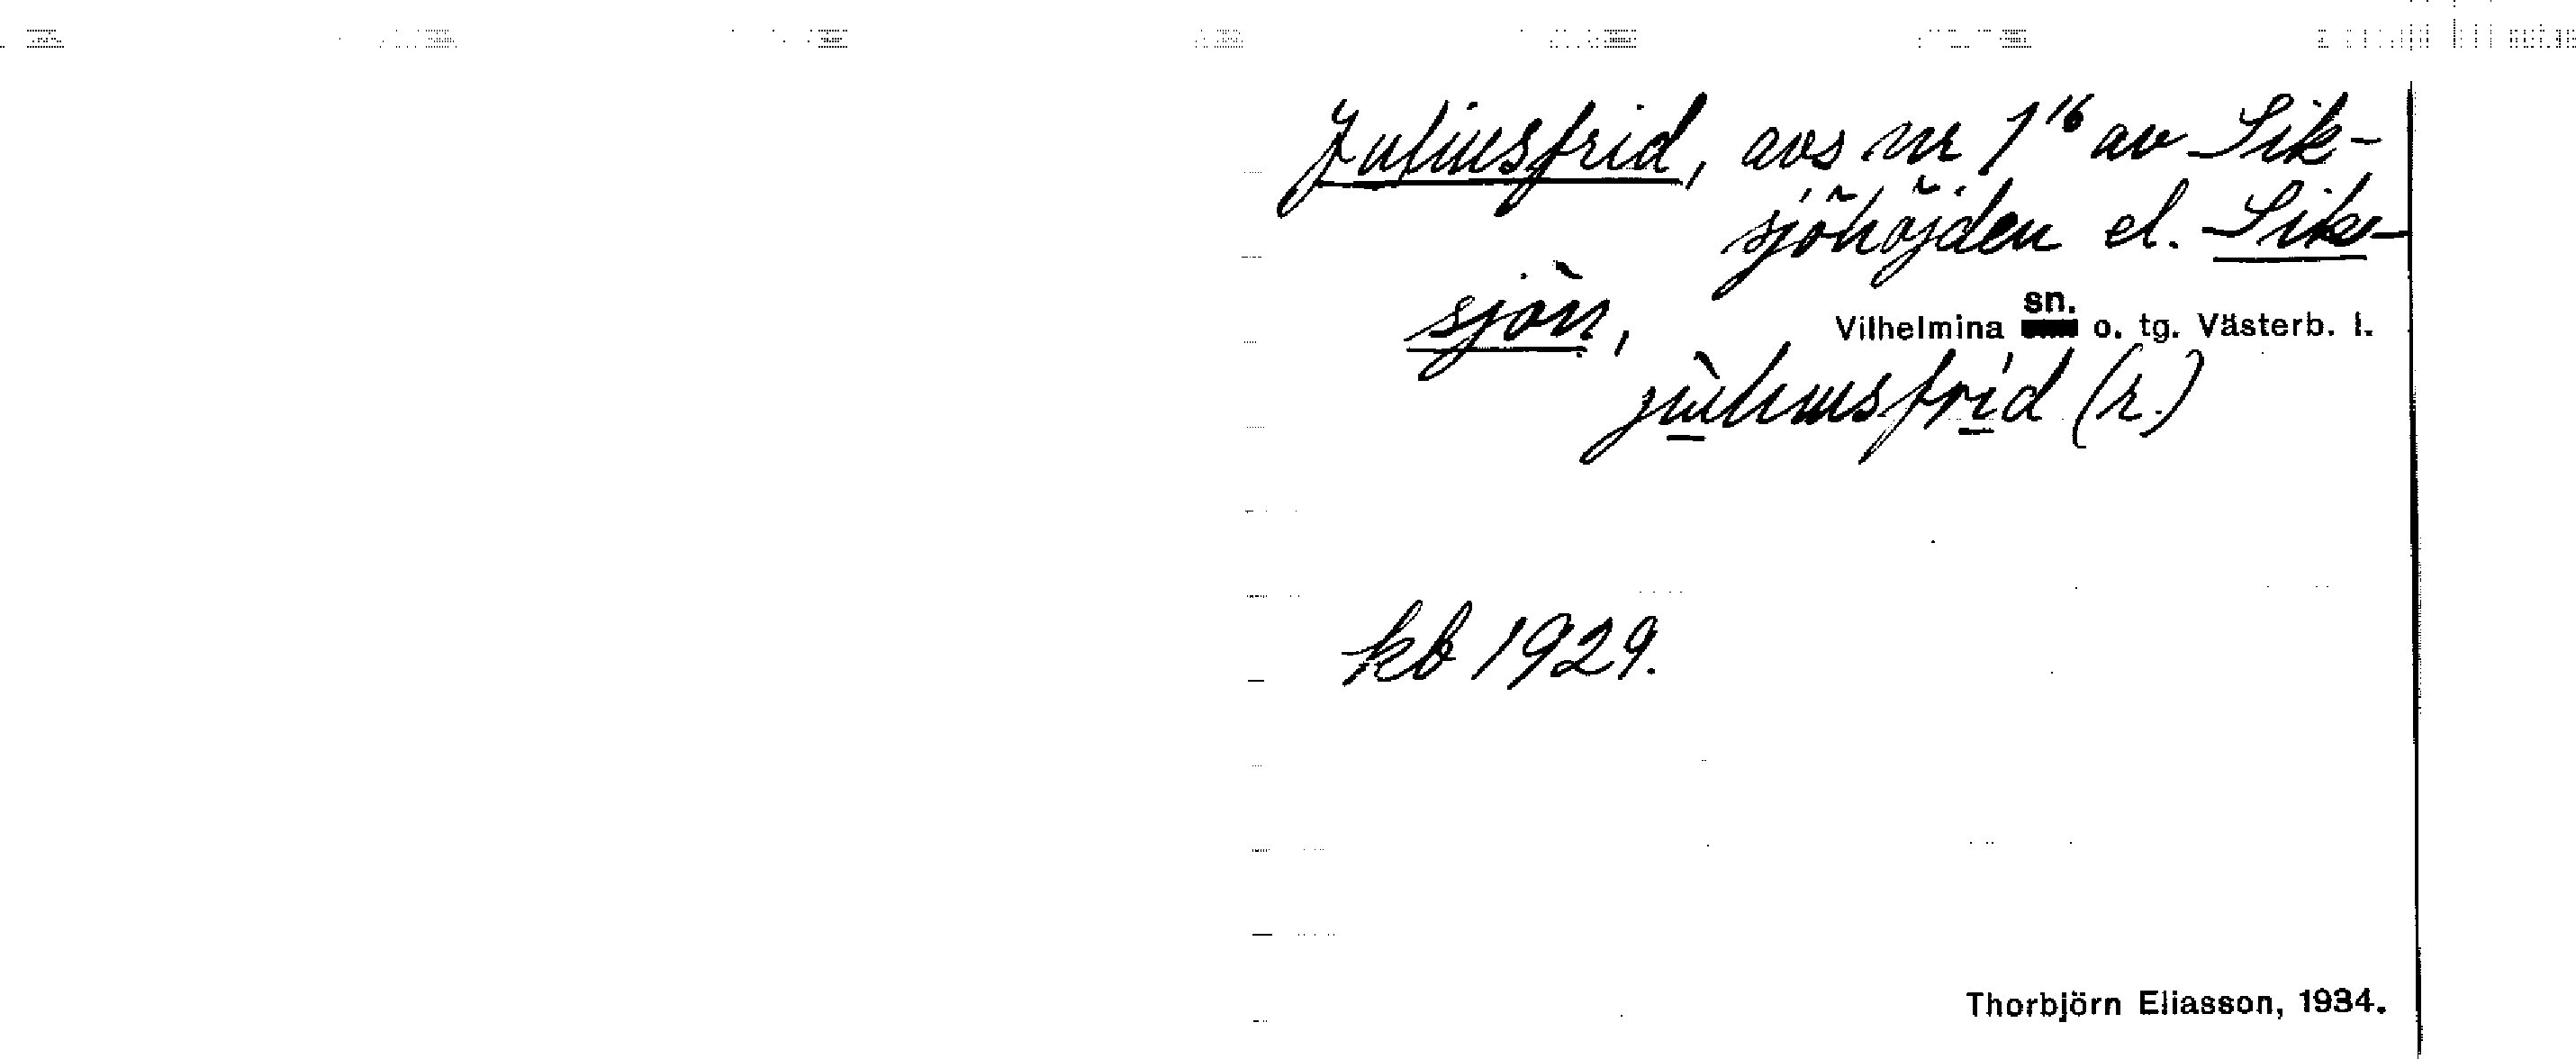 Juliusfrid, avs nr 1¹⁶ av Sik-
sjöhöjden el. Sik-
sjön,
Vilhelmina sn. o. tg. Västerb. l.
jùliusfríd (r.)
kb 1929.
Thorbjörn Eliasson, 1934.